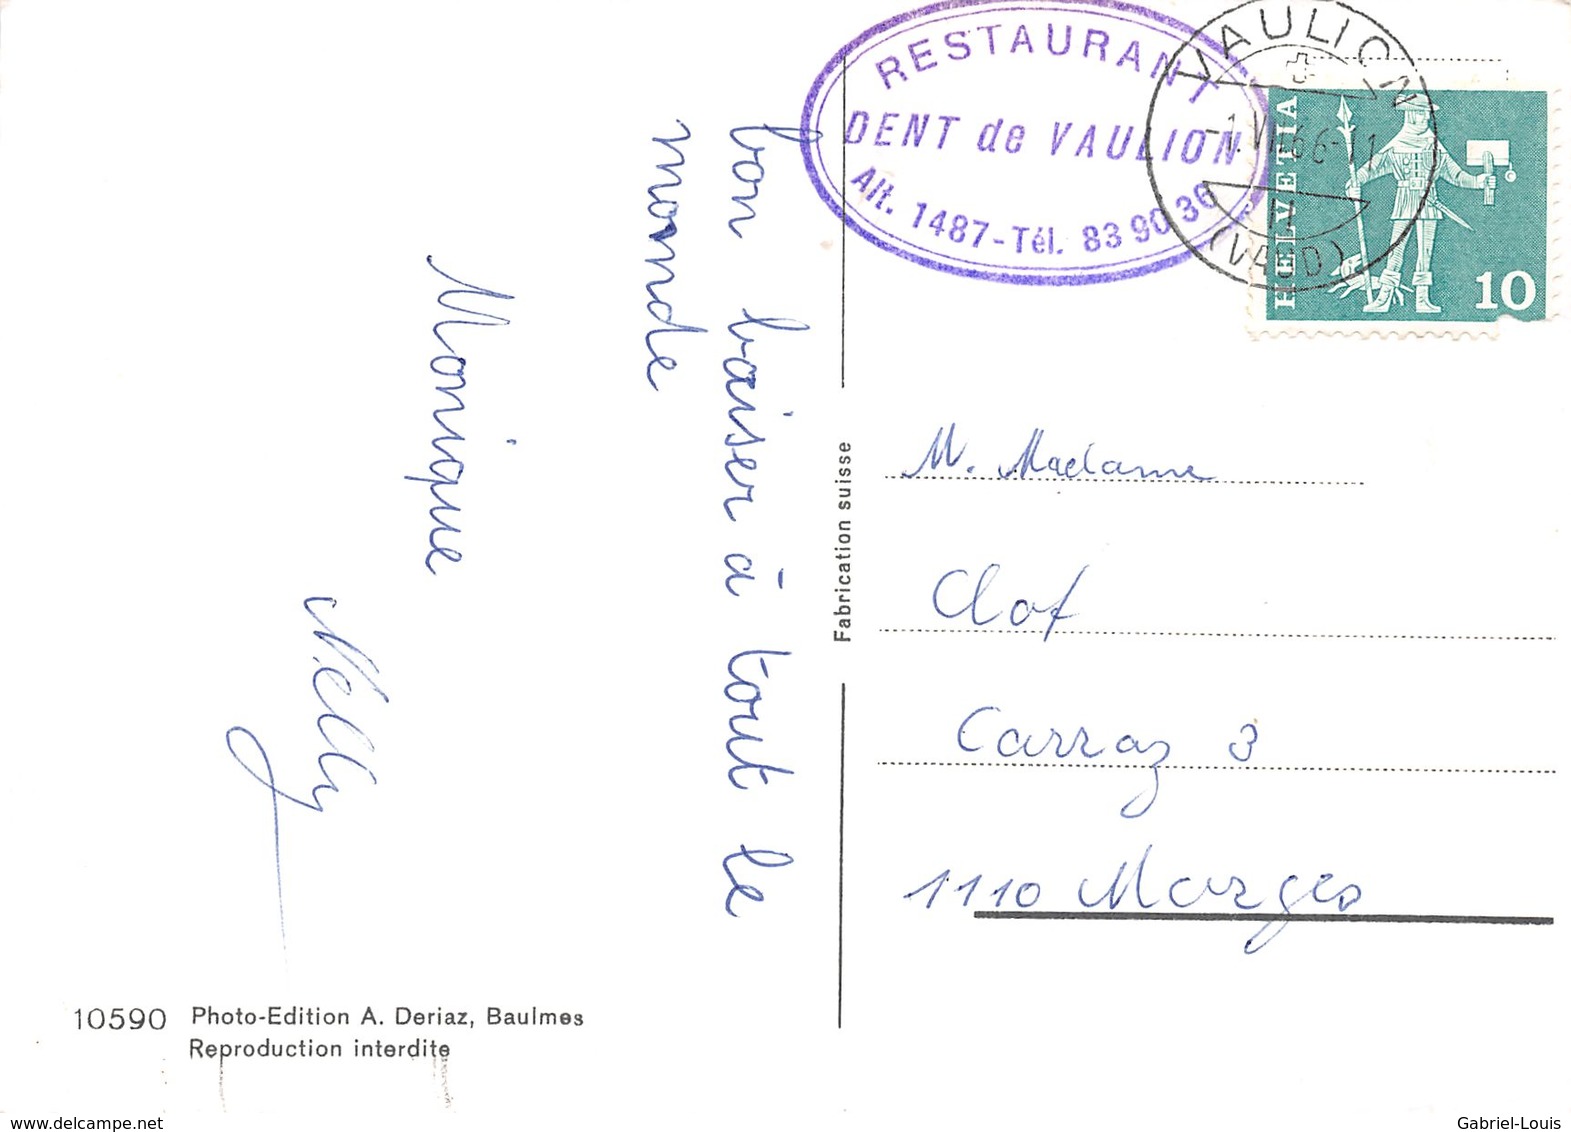 bon baiser à tout le
monde
Monique
Nelly
10590 Photo-Edition A. Deriaz, Baulmes
Reproduction interdite
Fabrication suisse
RESTAURANT
DENT de VAULION
Alt. 1487-Tél. 83 90 36
VAULION
(VAUD)
HELVETIA
10
M. Madame
Clot
Carraz 3
1110 Morges
www.delcampe.net
Gabriel-Louis